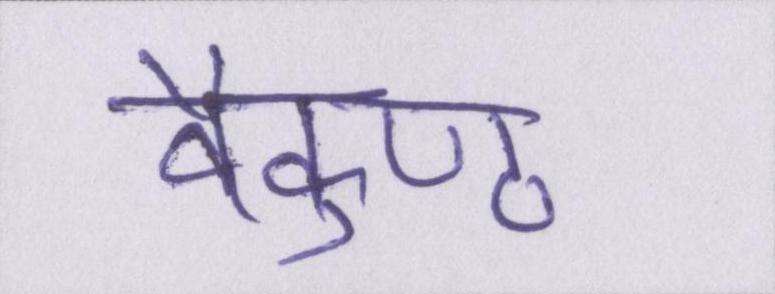 वैकुण्ठ